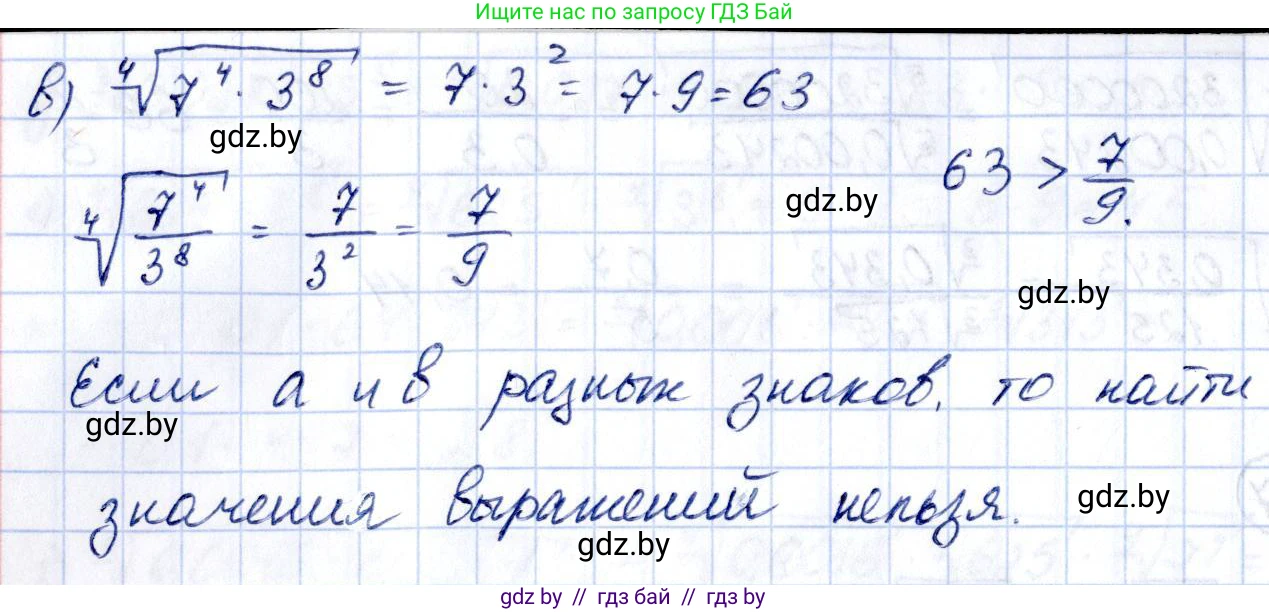 Ищите нас по запросу ГДЗ Бай
в) ⁴√(7⁴ · 3⁸) = 7 · 3² = 7 · 9 = 63
gdz.by
63 > 7/9.
gdz.by
⁴√(7⁴/3⁸) = 7/3² = 7/9
gdz.by
Если а и в разных знаков, то найти
gdz.by
значения выражений нельзя.
gdz.by
gdz.by
gdz.by // гдз бай // гдз by